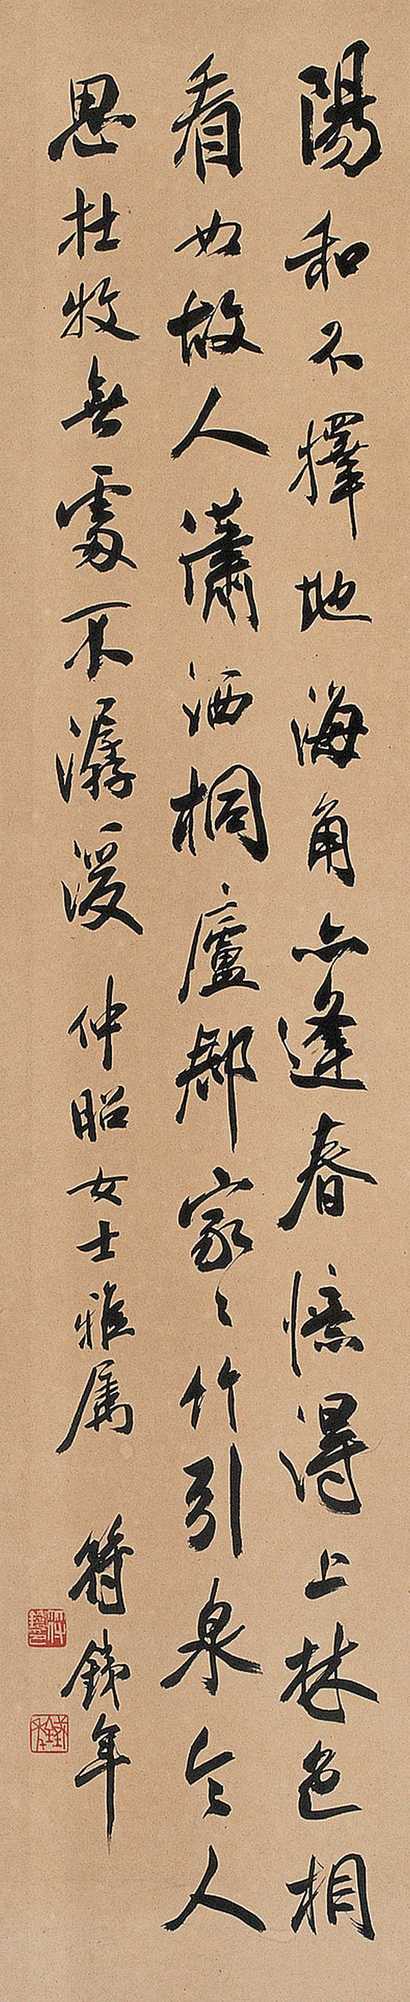 陽和不擇地海角亦逢春憶得上林色相
看如故人瀟洒桐廬郡家々竹引泉令人
思杜牧無處不潺湲 仲昭女士雅屬 符鐵年